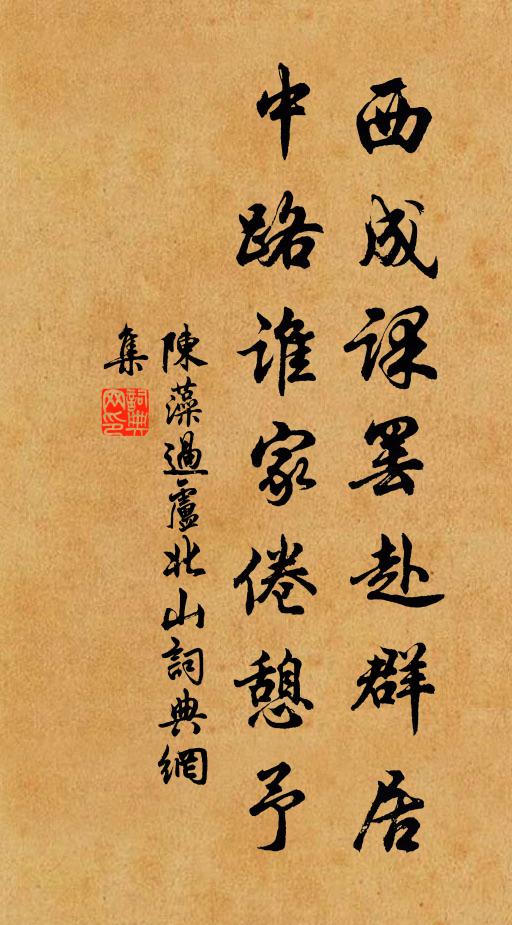 西成課罷赴群居
中路誰家倦憩予
陳藻過盧北山詞典網
集
詞典網印